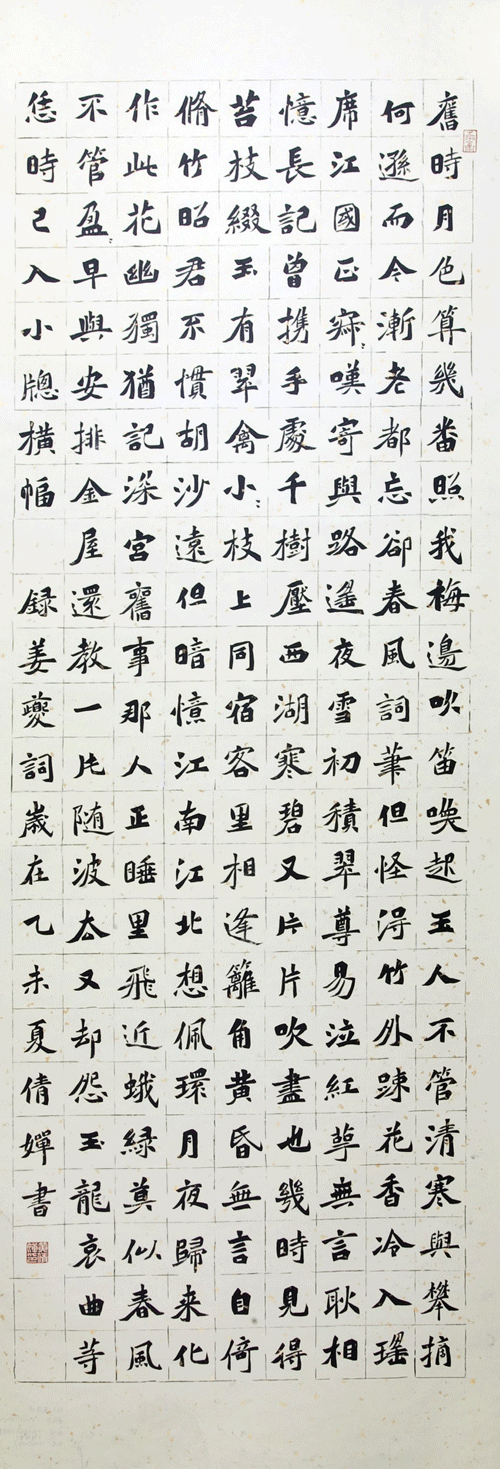 舊時月色算幾番照我梅邊吹笛喚起玉人不管清寒與攀摘
何遜而今漸老都忘卻春風詞筆但怪淂竹外踈花香冷入瑤
席江國正寂〻嘆寄與路遙夜雪初積翠尊易泣紅萼無言耿相
憶長記曾攜手處千樹壓西湖寒碧又片片吹盡也幾時見得
苔枝綴玉有翠禽小〻枝上同宿客里相逢籬角黃昏無言自倚
脩竹昭君不慣胡沙遠但暗憶江南江北想佩環月夜歸来化
作此花幽獨猶記深宮舊事那人正睡里飛近蛾綠莫似春風
不管盈〻早與安排金屋還教一片随波去又却怨玉龍哀曲等
恁時已入小牕橫幅 録姜夔詞歲在乙未夏倩嬋書